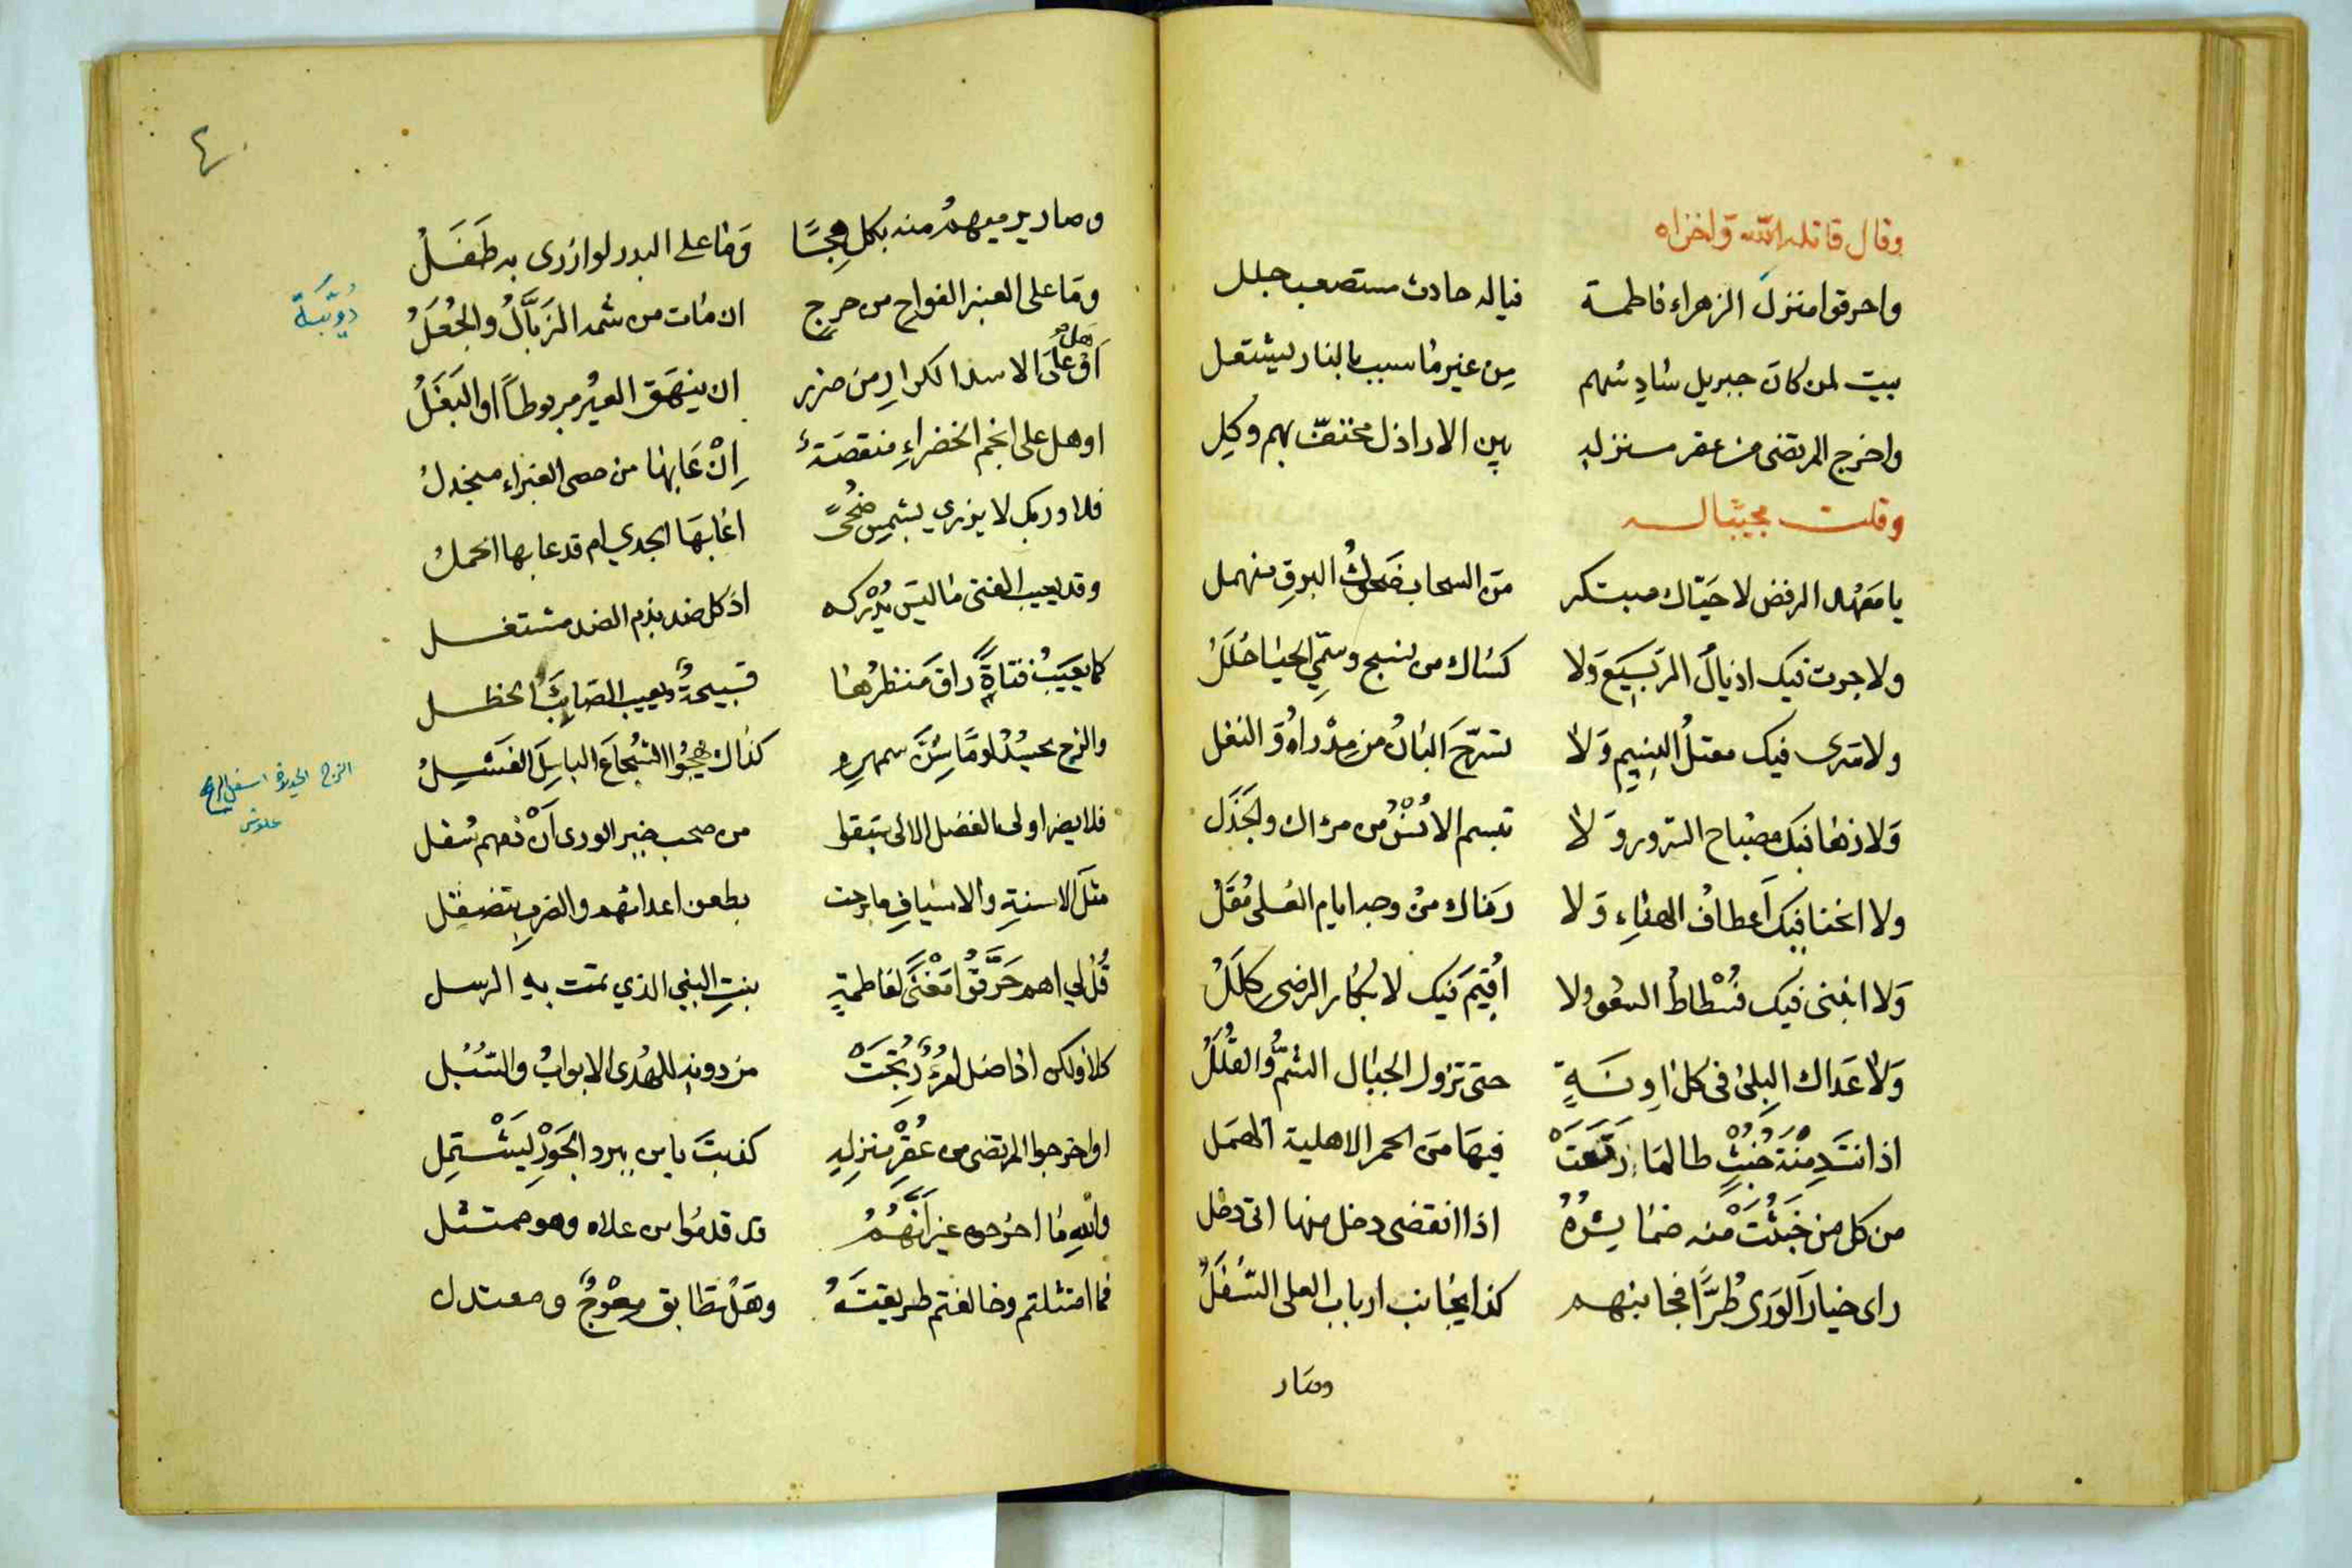 وقال قاتله الله واخزاه
واحرقوا منزل الزهراء فاطمة فياله حادث مستصعب جلل
بيت لمن كان جبريل سادسهم من غير ما سبب بالنار يشتعل
واخرج المرتضى من عقر منزله بين الاراذل محتف بهم وكل
وقلت مجيبا له
يا معهد الرفض لا حياك مبتكر من السحاب ضحوك البرق منهمل
ولا جرت فيك اذيال الربيع ولا كساك من نسج وسمي الحيا حلل
ولا سرى فيك معتل النسيم ولا
ولا زها فيك مصباح السرور ولا تبسم الانس من مراك والجذل
ولا انحنا فيك اعطاف الهناء ولا رمناك من وجد ايام العلى مقل
ولا ابتنى فيك فسطاط السعود ولا اقيم فيك لابكار الرضى كلل
ولا عداك البلى في كل اونة حتى تزول الجبال الشم والقلل
طالما رتعت فيها من الحمر الاهلية الهمل
من كل من خبثت منه اذا انقضى دخل منها اتى دخل
راى خيار الورى طرا فجانبهم كذا يجانب ارباب العلى السفل
وصار
٤
وصار يرميهم منه بكل هجا وما على البدر لو ازرى به طفل
وما على العنبر الفواح من حرج ان مات من شمه الزبال والجعل
دويبة
هل
او على الاسد الكرار من ضرر ان ينهق العير مربوطا او البغل
او هل على انجم الخضراء منقصة ان عابها من حصى الغبراء منجدل
فلا وربك لا يزري بشمس ضحى اعابها الجدي ام قد عابها الحمل
وقد يعيب الفتى ما ليس يدركه اذ كل ضد بذم الضد مشتغل
كما يعيب فتاة راق منظرها قبيحة ويعيب الصايب الخطل
والزج يحسد لوما سن سمهره كذاك يهجوا الشجاع الباسل الفشل
الزج الحديدة اسفل الرمح
فلا يضر اولى الفضل الالى سبقوا من صحب خير الورى ان ذمهم سفل
مثل الاسنة والاسياف ما برحت بطعن اعدائهم والضرب تنصقل
قل لي اهم حرقوا مغنى لفاطمة بنت النبي الذي تمت به الرسل
كلا ولكن اذا ضل امرؤ رتجت من دونه للهدى الابواب والسبل
او اخرجوا المرتضى من عقر منزله كذبت يا من ببرد الجور يشتمل
والله ما اخرجوه غير انهم قد قدموا من علاه وهو ممتثل
فما امتثلتم وخالفتم طريقته وهل تطابق معوج ومعتدل